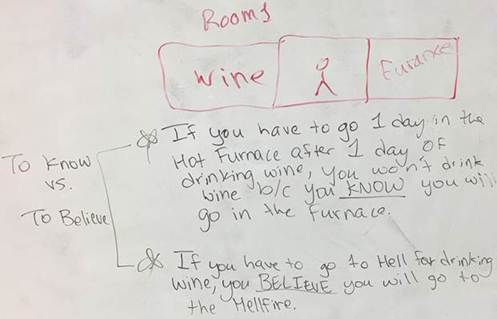 Rooms
wine
Furance
To Know
vs.
To Believe
If you have to go 1 day in the
Hot Furnace after 1 day of
drinking wine, you won't drink
wine b/c you KNOW you will
go in the Furnace.
If you have to go to Hell for drinking
wine, you BELIEVE you will go to
the Hellfire.